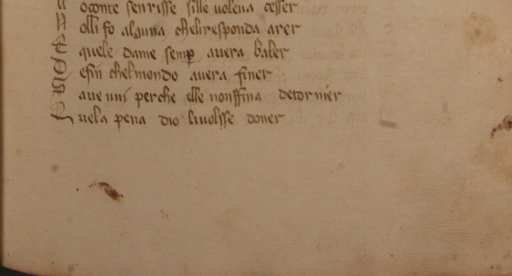 oconte senrisse sille volena cesser
N olli fo alguna cheliresponda arer
E quele dame semp avera baler
E sin chelmondo avera finer
ave uni perche elle nonffina detornier
Q uela pena dio livolsse doner